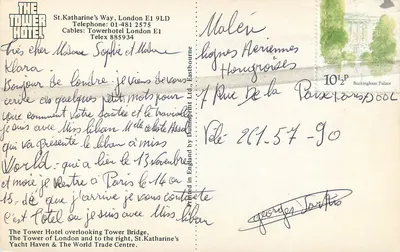 THE
TOWER
HOTEL
St.Katharine's Way, London E1 9LD
Telephone: 01-481 2575
Cables: Towerhotel London E1
Telex 885934
Très cher Madame Sophie et Madame
Klara.
Bonjour de londre. je viens de vous
écrire ces quelques petits mots pour
vous comment votre santée et le travaille
je suis avec Miss liban
qui va présenté le liban à miss
World. qui a lieu le 13 novembre
et moi je rentre à Paris le 14 ou
15. dè que j'arrive je vous contacte
c'est l'otel ou je suis avec Miss. liban
The Tower Hotel overlooking Tower Bridge,
The Tower of London and to the right, St.Katharine's
Yacht Haven & The World Trade Centre.
Printed in England by Eastbourne
Malév
lignes Aeriennes
Hongroises
7 Rue De la Paix Paris
Tele- 261-57-90
georges
10½P
Buckingham Palace